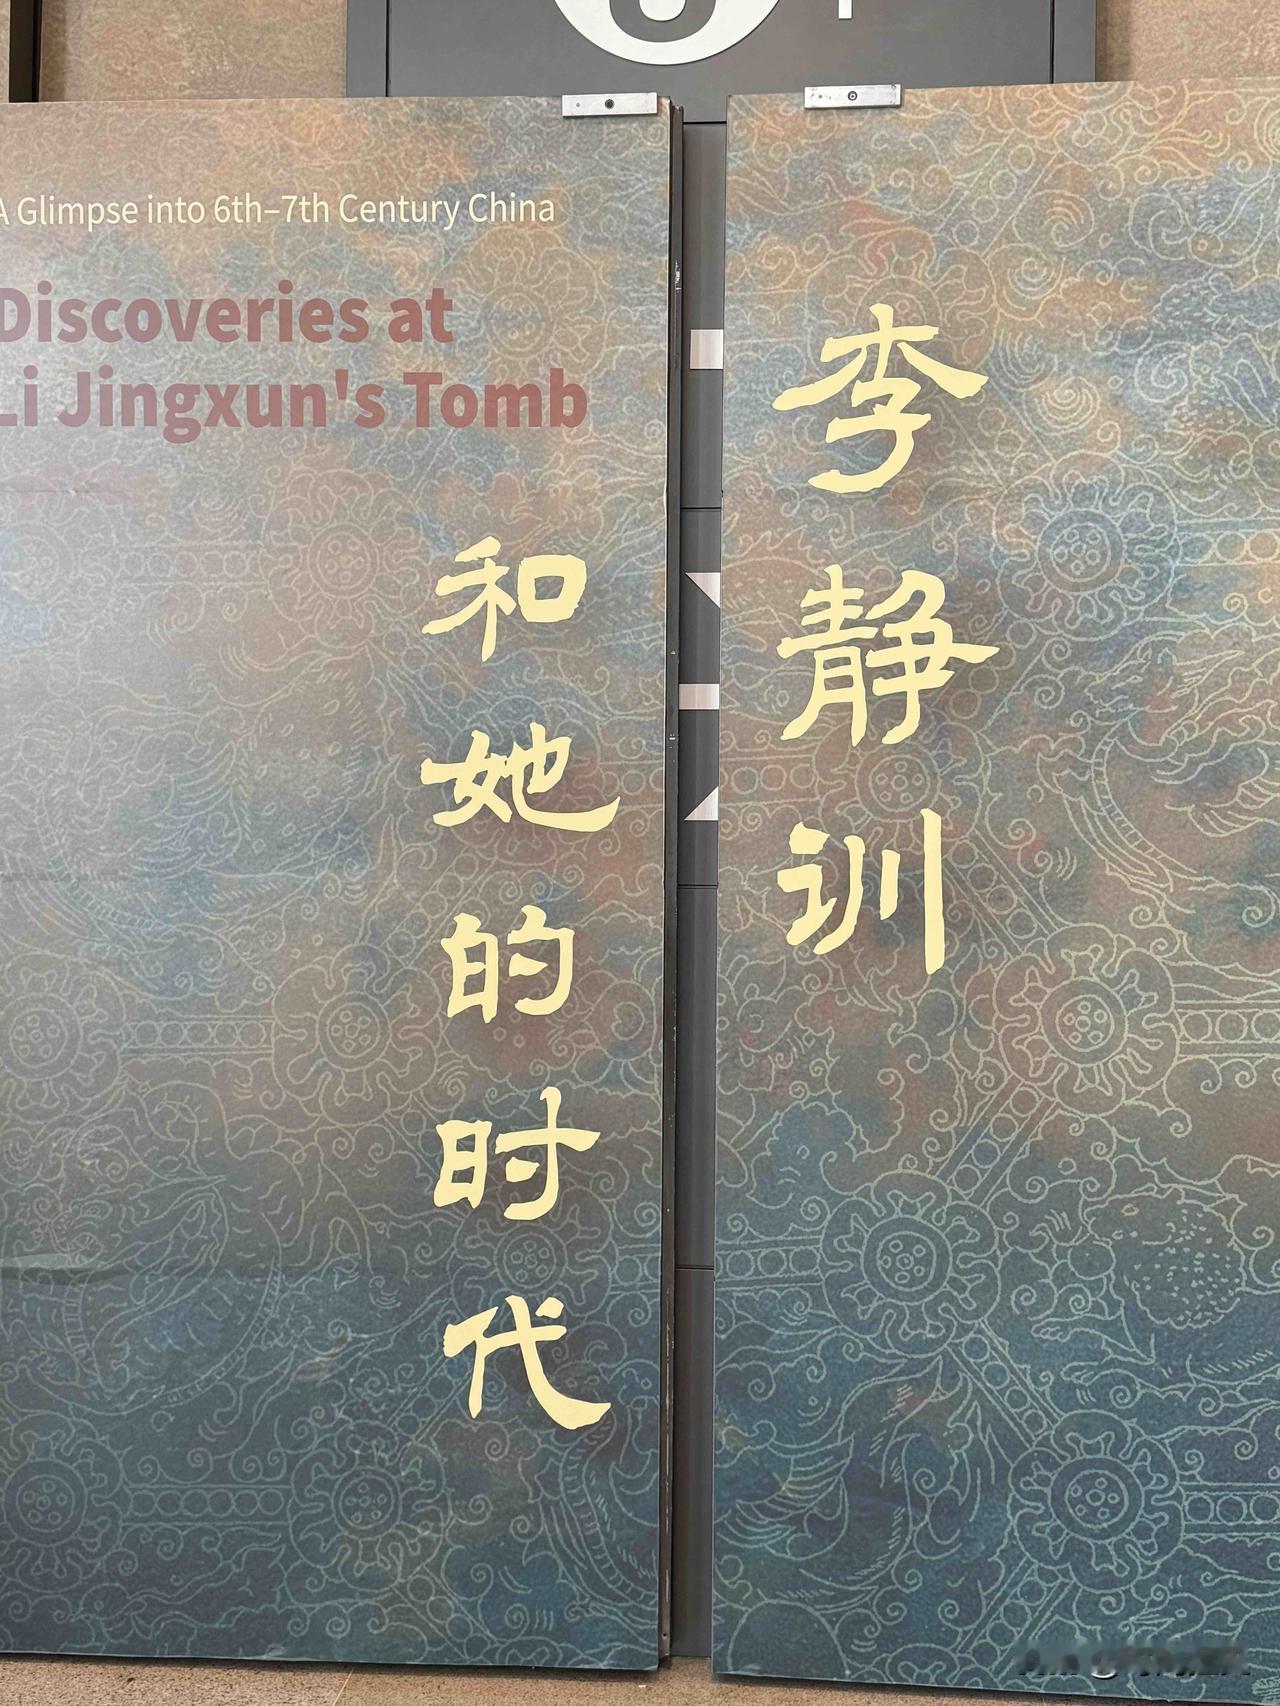 A Glimpse into 6th–7th Century China
Discoveries at
Li Jingxun's Tomb
李静训
和她的时代